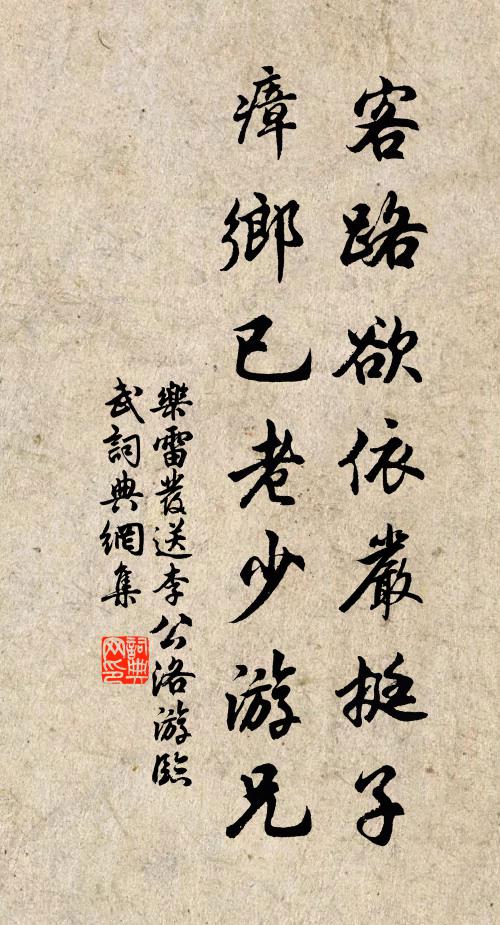 客路欲依嚴挺子
瘴鄉已老少游兄
樂雷發送李公洛游臨
武詞典網集
詞典
网印